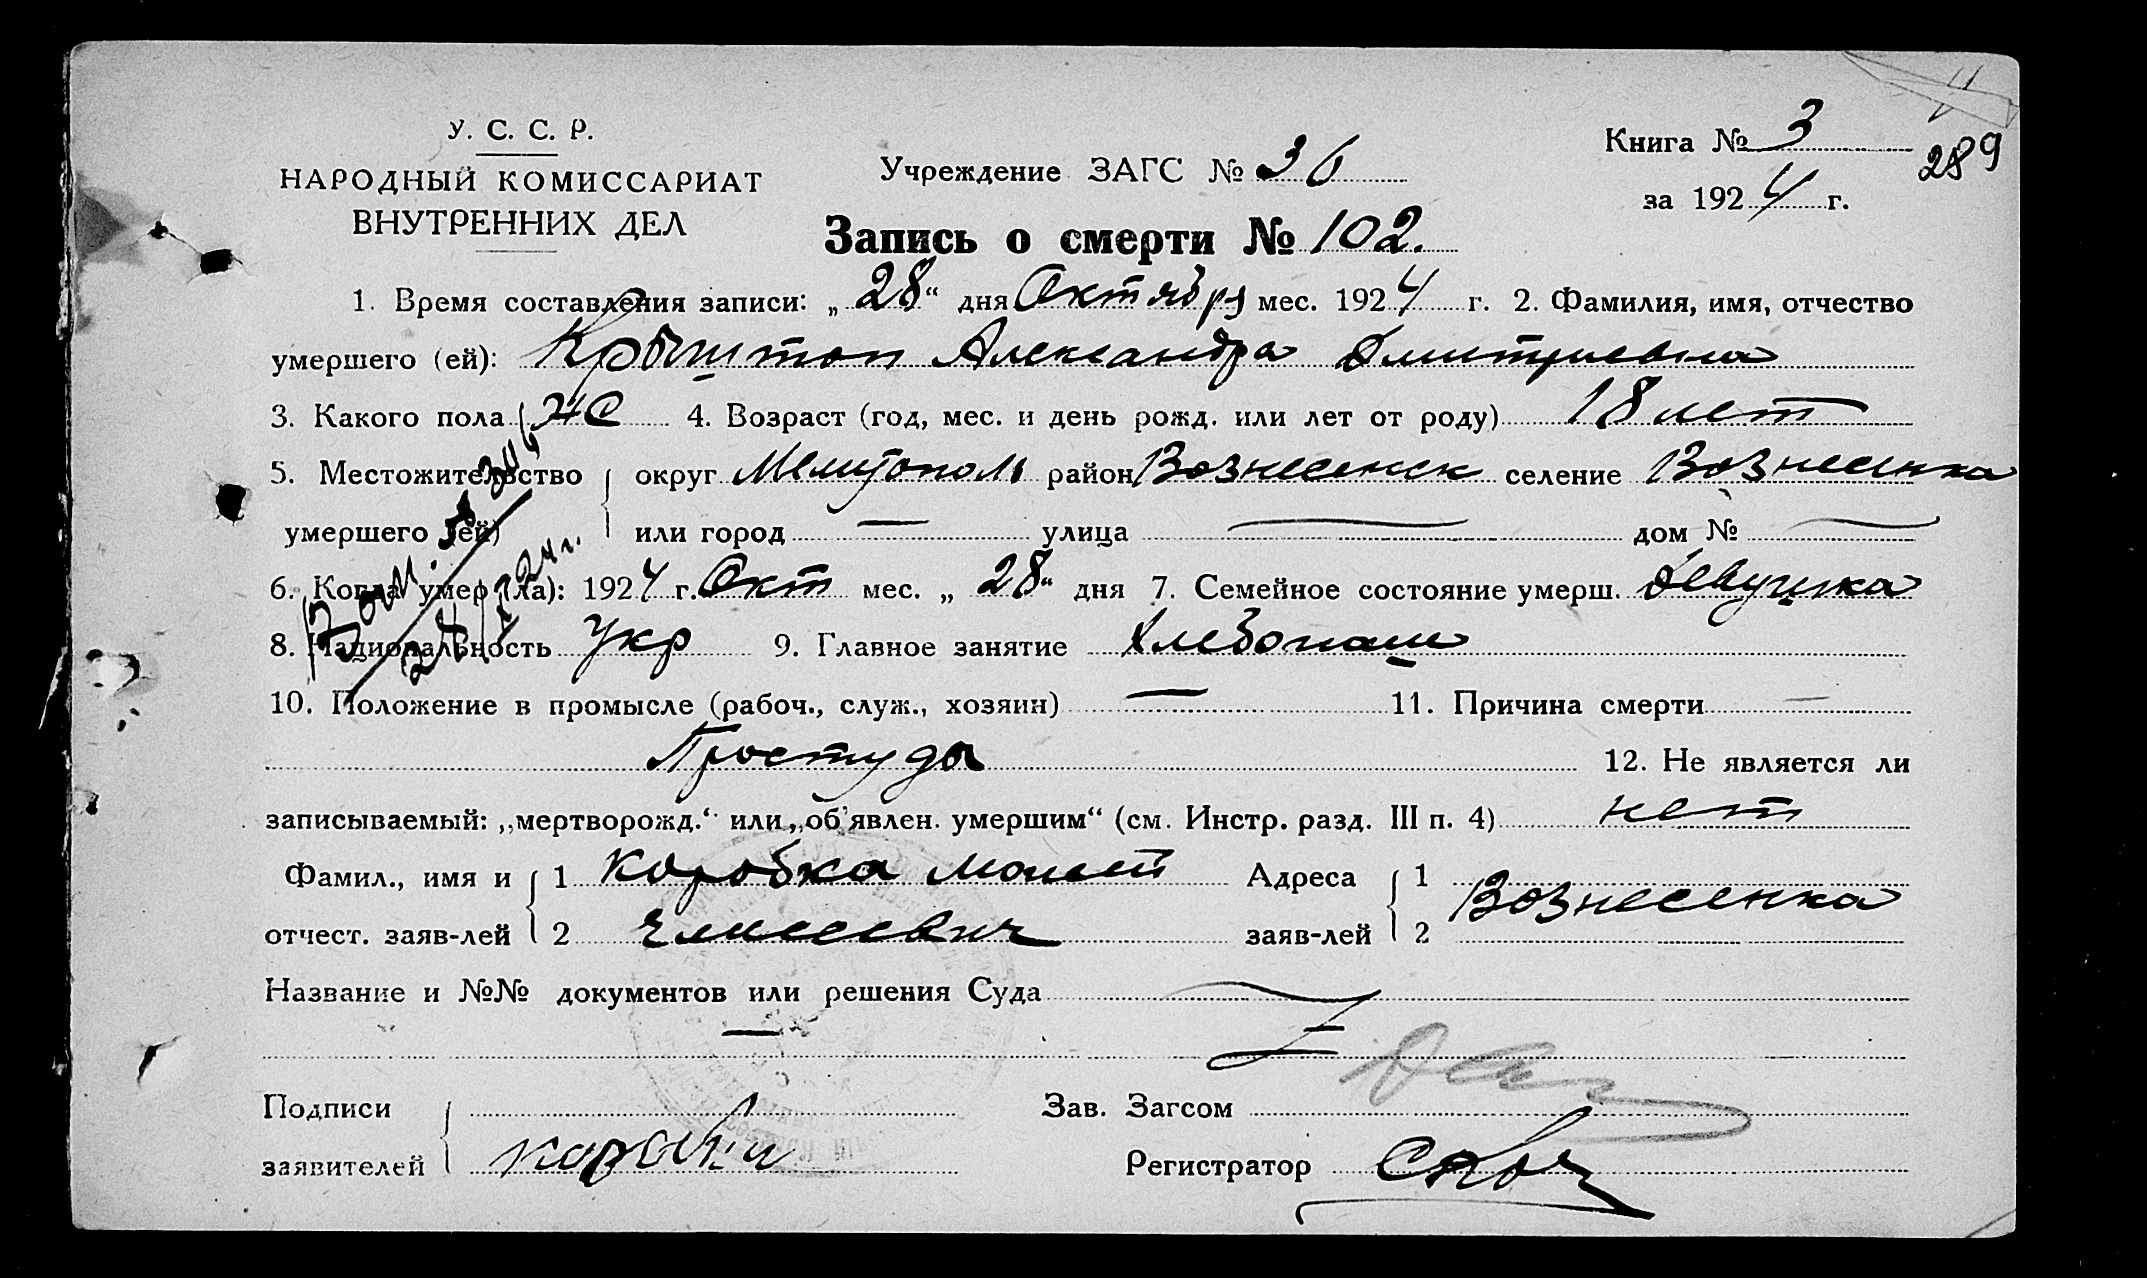 У. С. С. Р.
НАРОДНЫЙ КОМИССАРИАТ
ВНУТРЕННИХ ДЕЛ
Учреждение ЗАГС № 36
Книга № 3
289
за 1924 г.
Запись о смерти № 102.
1. Время составления записи: „28“ дня Октября мес. 1924 г. 2. Фамилия, имя, отчество
умершего (ей): Крыштоп Александра Дмитриевна
3. Какого пола Же 4. Возраст (год, мес. и день рожд. или лет от роду) 18 лет
5. Местожительство округ Мелитополь район Вознесенск селение Вознесенка
умершего (ей) или город — улица — дом № —
6. Когда умер (ла): 1924 г. Окт мес. „28“ дня 7. Семейное состояние умерш. Девушка
8. Национальность Укр 9. Главное занятие Хлебопаш
10. Положение в промысле (рабоч., служ., хозяин) — 11. Причина смерти —
Простуда 12. Не является ли
записываемый: „мертворожд.“ или „об'явлен. умершим“ (см. Инстр. разд. III п. 4) нет
Фамил., имя и 1 Коробка Моисей Адреса 1
отчест. заяв-лей 2 Елисеевич заяв-лей 2 Вознесенка
Название и №№ документов или решения Суда
—
Подписи Зав. Загсом
заявителей Регистратор